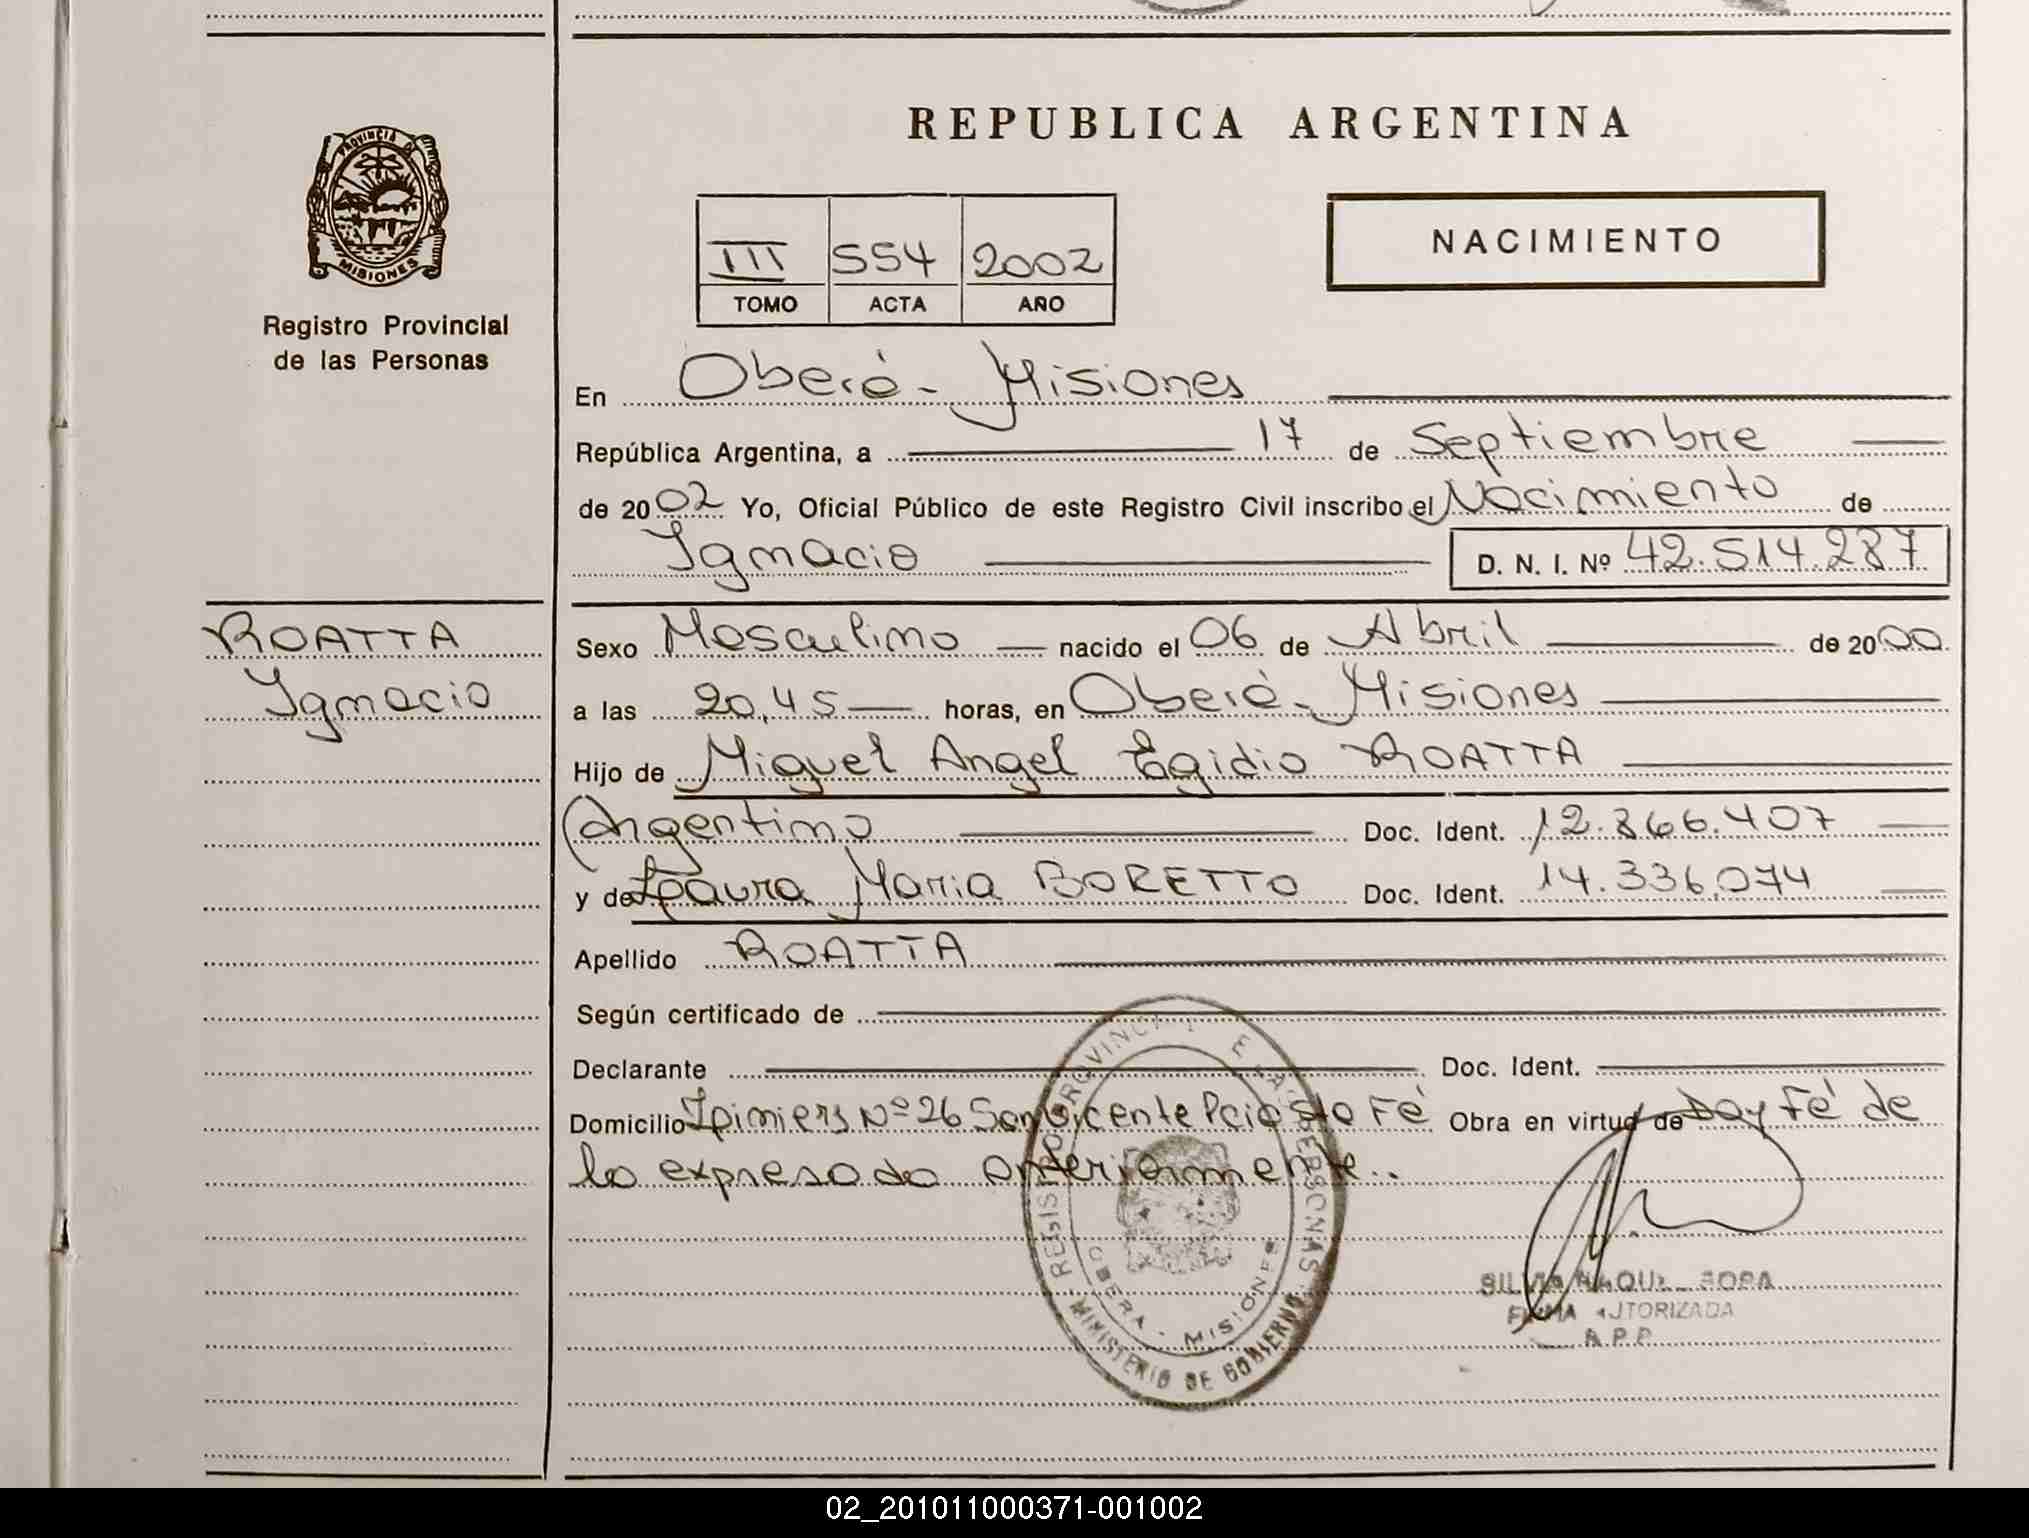 PROVINCIA DE
MISIONES
Registro Provincial
de las Personas
REPUBLICA ARGENTINA
III 554 2002
TOMO ACTA AÑO
NACIMIENTO
En Oberá - Misiones
República Argentina, a 17 de Septiembre
de 2002 Yo, Oficial Público de este Registro Civil inscribo el Nacimiento de
Ignacio D. N. I. Nº 42.514.287
ROATTA
Ignacio
Sexo Masculino nacido el 06 de Abril de 2000
a las 20,45 horas, en Oberá - Misiones
Hijo de Miguel Angel Egidio ROATTA
Argentino Doc. Ident. 12.866.407
y de Laura Maria BORETTO Doc. Ident. 14.336.074
Apellido ROATTA
Según certificado de
Declarante Doc. Ident.
Domicilio Nº 26 San Vicente Pcia Sta Fé Obra en virtud de Doy Fé de
lo expresado anteriormente..
OBERA - MISIONES
MINISTERIO DE GOBIERNO
FIRMA AUTORIZADA
02_201011000371-001002